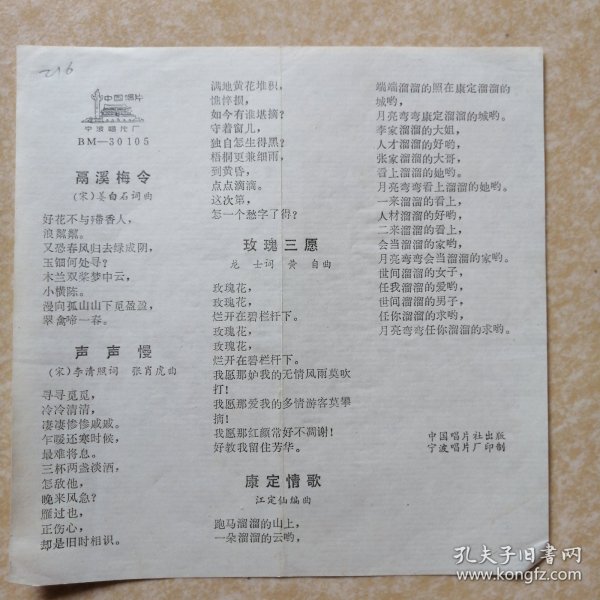 216
中国唱片
宁波唱片厂
BM—30105
鬲溪梅令
（宋）姜白石词曲
好花不与殢香人，
浪粼粼。
又恐春风归去绿成阴，
玉钿何处寻？
木兰双桨梦中云，
小横陈。
漫向孤山山下觅盈盈，
翠禽啼一春。
声声慢
（宋）李清照词 张肖虎曲
寻寻觅觅，
冷冷清清，
凄凄惨惨戚戚。
乍暖还寒时候，
最难将息。
三杯两盏淡酒，
怎敌他，
晚来风急？
雁过也，
正伤心，
却是旧时相识。
满地黄花堆积，
憔悴损，
如今有谁堪摘？
守着窗儿，
独自怎生得黑？
梧桐更兼细雨，
到黄昏，
点点滴滴。
这次第，
怎一个愁字了得？
玫瑰三愿
龙 士词 黄 自曲
玫瑰花，
玫瑰花，
烂开在碧栏杆下。
玫瑰花，
玫瑰花，
烂开在碧栏杆下。
我愿那妒我的无情风雨莫吹
打！
我愿那爱我的多情游客莫攀
摘！
我愿那红颜常好不凋谢！
好教我留住芳华。
康定情歌
江定仙编曲
跑马溜溜的山上，
一朵溜溜的云哟，
端端溜溜的照在康定溜溜的
城哟，
月亮弯弯康定溜溜的城哟。
李家溜溜的大姐，
人才溜溜的好哟，
张家溜溜的大哥，
看上溜溜的她哟。
月亮弯弯看上溜溜的她哟。
一来溜溜的看上，
人材溜溜的好哟，
二来溜溜的看上，
会当溜溜的家哟，
月亮弯弯会当溜溜的家哟。
世间溜溜的女子，
任我溜溜的爱哟，
世间溜溜的男子，
任你溜溜的求哟，
月亮弯弯任你溜溜的求哟。
中国唱片社出版
宁波唱片厂印制
孔夫子旧书网
www.kongfz.com